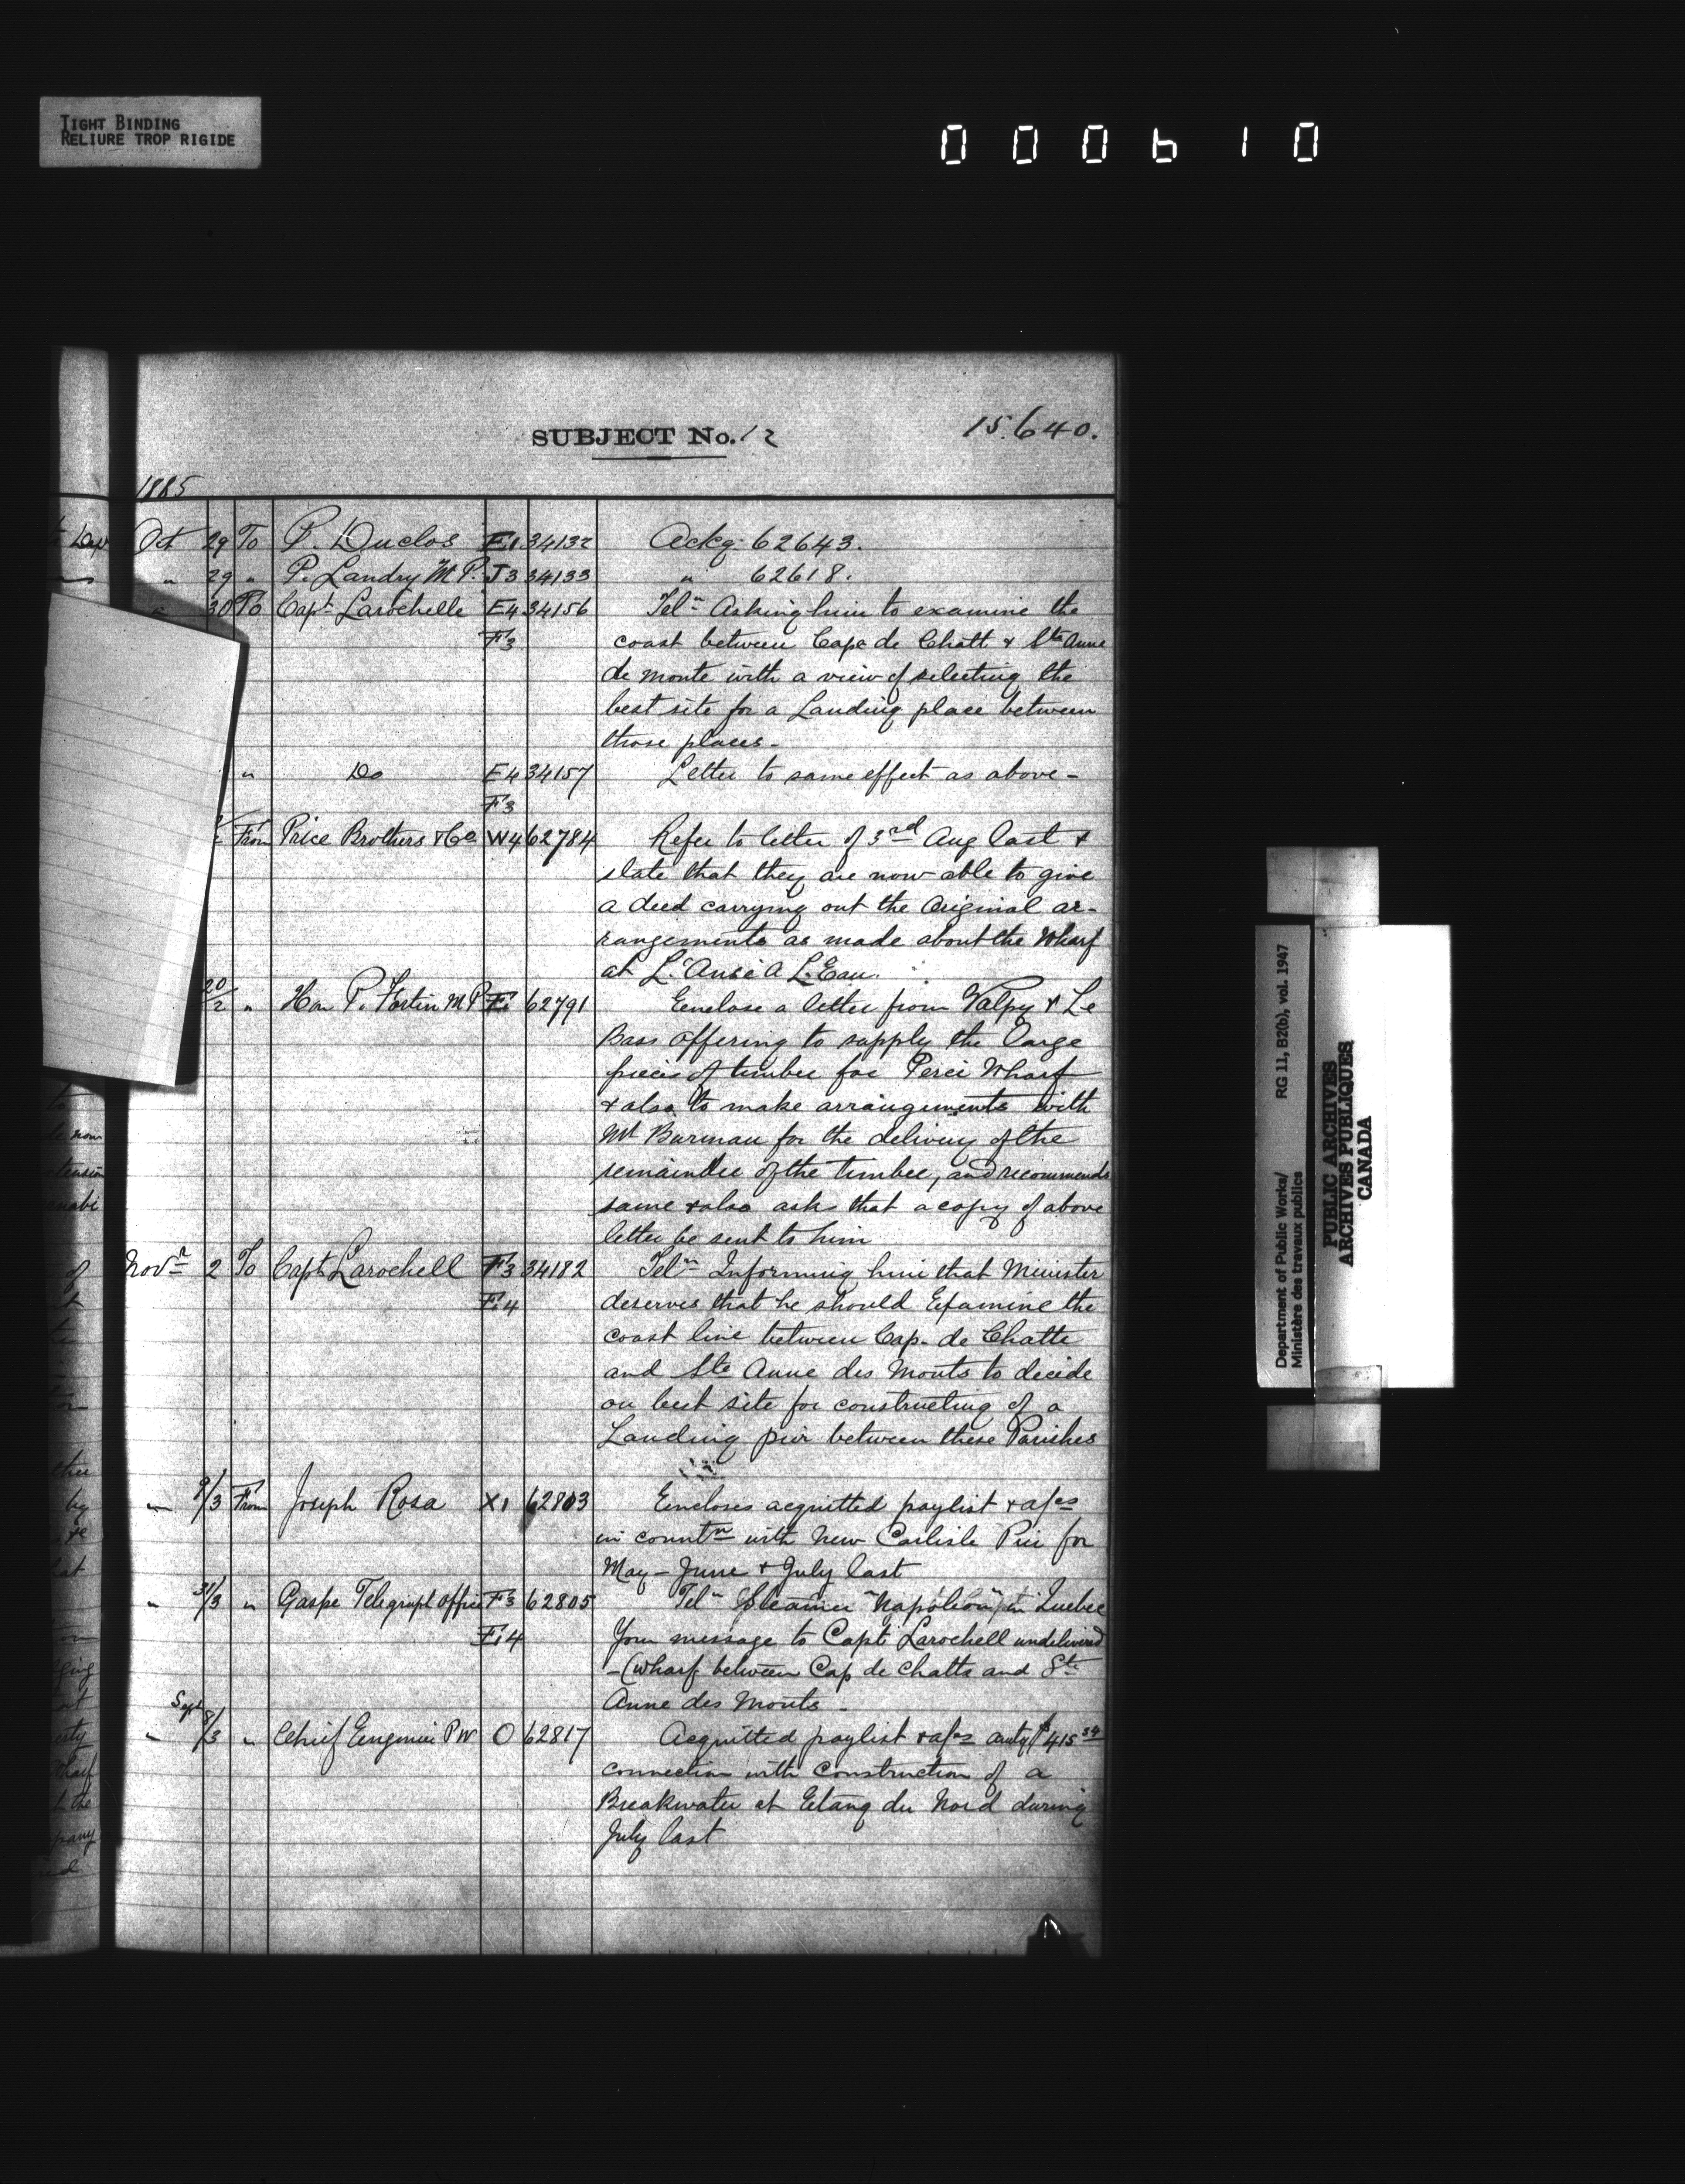 TIGHT BINDING
RELIURE TROP RIGIDE
000610
SUBJECT No. 12
15.640.
1885
Oct 29 To P. Duclos E1 34132 Ackg. 62643.
" 29 " P. Landry M.P. J3 34133 " 62618.
" 30 To Capt Larochelle E4 34156 Telm Asking him to examine the
F3 coast between Cape de Chatt & Ste Anne
de monte with a view of selecting the
best site for a Landing place between
those places -
" Do E4 34157 Letter to same effect as above -
F3
From Price Brothers & Co W4 62784 Refer to letter of 3rd Aug last &
state that they are now able to give
a deed carrying out the Original ar-
rangements as made about the Wharf
at L'Anse A L'Eau.
20/2 " Hon P. Fortin M P F1 62791 Eenclose a letter from Valpy & Le
Bass offering to supply the large
pieces of timber for Percé Wharf
& also to make arrangements with
Mr Burman for the delivery of the
remainder of the timber, and recommends
same & also asks that a copy of above
letter be sent to him
Novr 2 To Capt Larochell F3 34182 Telm Informing him that Minister
F.4 deserves that he should Examine the
coast line between Cap. de Chatte
and Ste Anne des Monts to decide
on best site for constructing of a
Landing pier between these Parishes
" 9/3 From Joseph Rosa X1 62803 Eencloses acquitted paylist & a/cs
in countn with New Carlisle Pier for
May - June & July last
" 31/3 " Gaspe Telegraph Office F3 62805 Telm Steamer "Napoleon" in Quebec
F.4 Your message to Capt Larochell undelivered
- (Wharf between Cap de Chatts and Ste
Anne des Monts -
Sept
" 8/3 " Chief Engineer P W O 62817 Acquitted paylist & a/cs amtg $415 34
connection with Construction of a
Breakwater at Etang du Nord during
July last
Department of Public Works/ RG 11, B2(b), vol. 1947
Ministère des travaux publics
PUBLIC ARCHIVES
ARCHIVES PUBLIQUES
CANADA